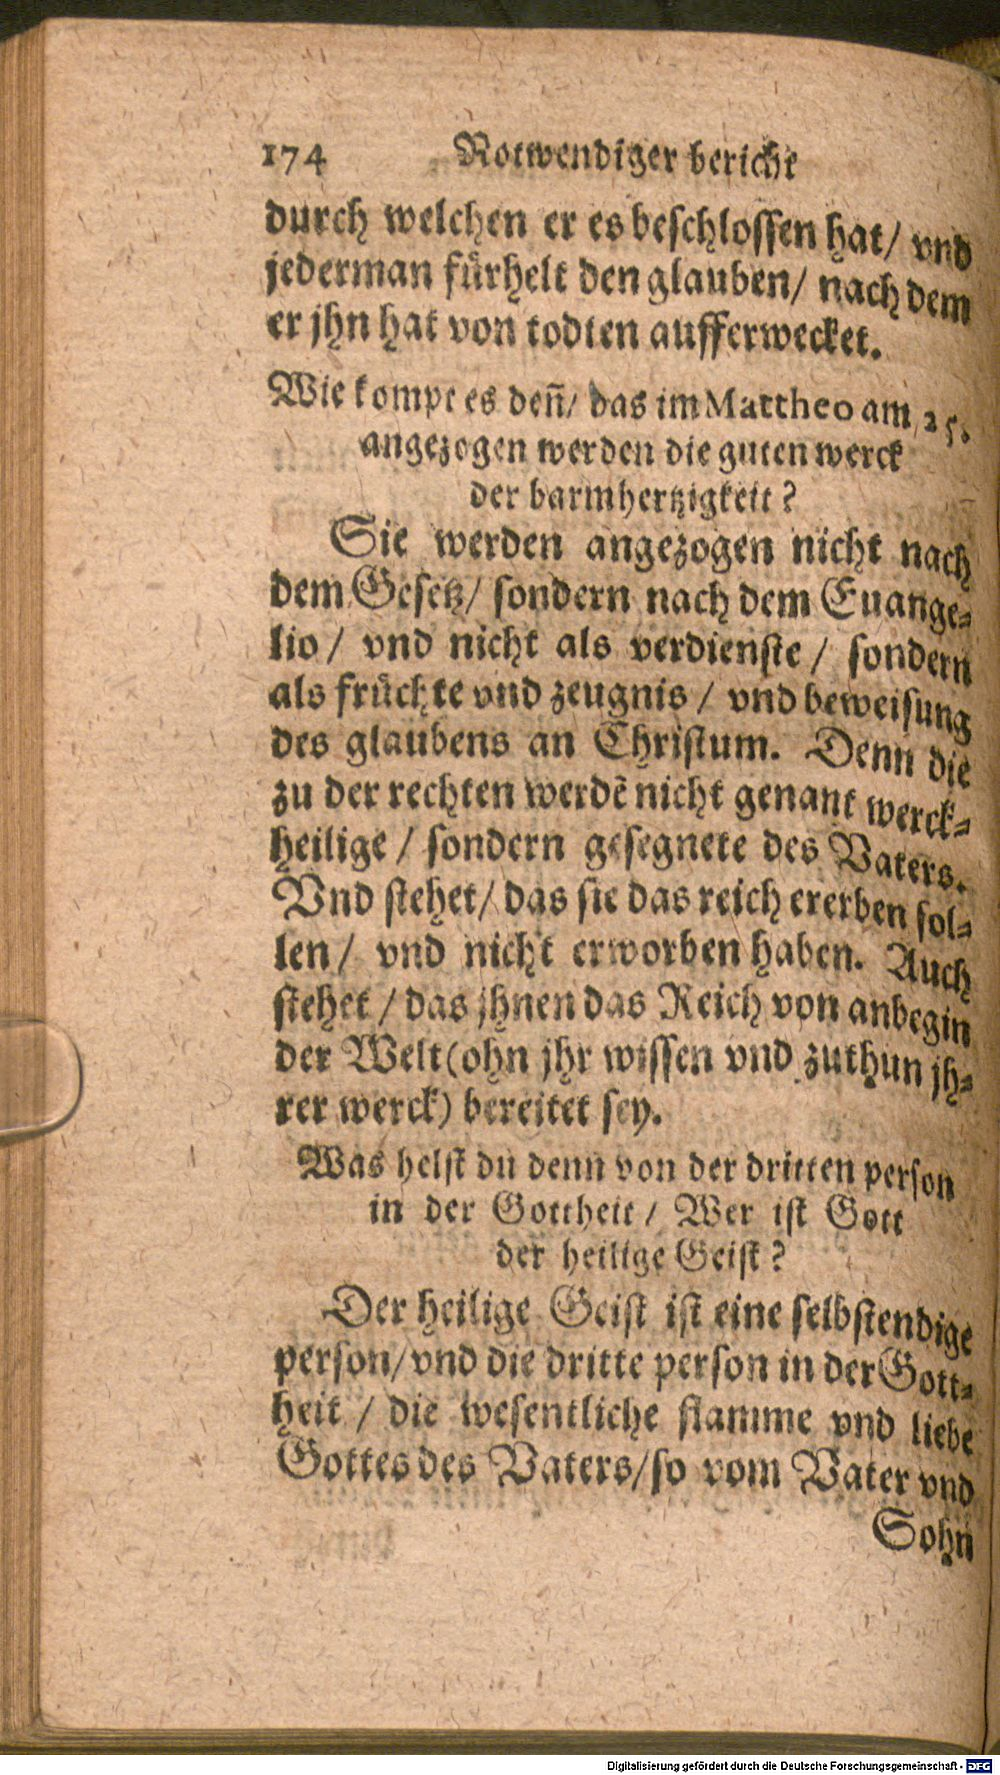 174 Notwendiger bericht
durch welchen er es beschlossen hat/ vnd
jederman fürhelt den glauben/ nach dem
er jhn hat von todten aufferwecket.
Wie kompt es deñ/ das im Mattheo am 25.
angezogen werden die guten werck
der barmhertzigkeit?
Sie werden angezogen nicht nach
dem Gesetz/ sondern nach dem Euange-
lio/ vnd nicht als verdienste/ sondern
als früchte vnd zeugnis/ vnd beweisung
des glaubens an Christum. Denn die
zu der rechten werdē nicht genant werck-
heilige/ sondern gesegnete des Vaters.
Vnd stehet/ das sie das reich ererben sol-
len/ vnd nicht erworben haben. Auch
stehet/ das jhnen das Reich von anbegin
der Welt (ohn jhr wissen vnd zuthun jh-
rer werck) bereitet sey.
Was helst du denn von der dritten person
in der Gottheit/ Wer ist Gott
der heilige Geist?
Der heilige Geist ist eine selbstendige
person/ vnd die dritte person in der Gott-
heit/ die wesentliche flamme vnd liebe
Gottes des Vaters/ so vom Vater vnd
Sohn
Digitalisierung gefördert durch die Deutsche Forschungsgemeinschaft - DFG